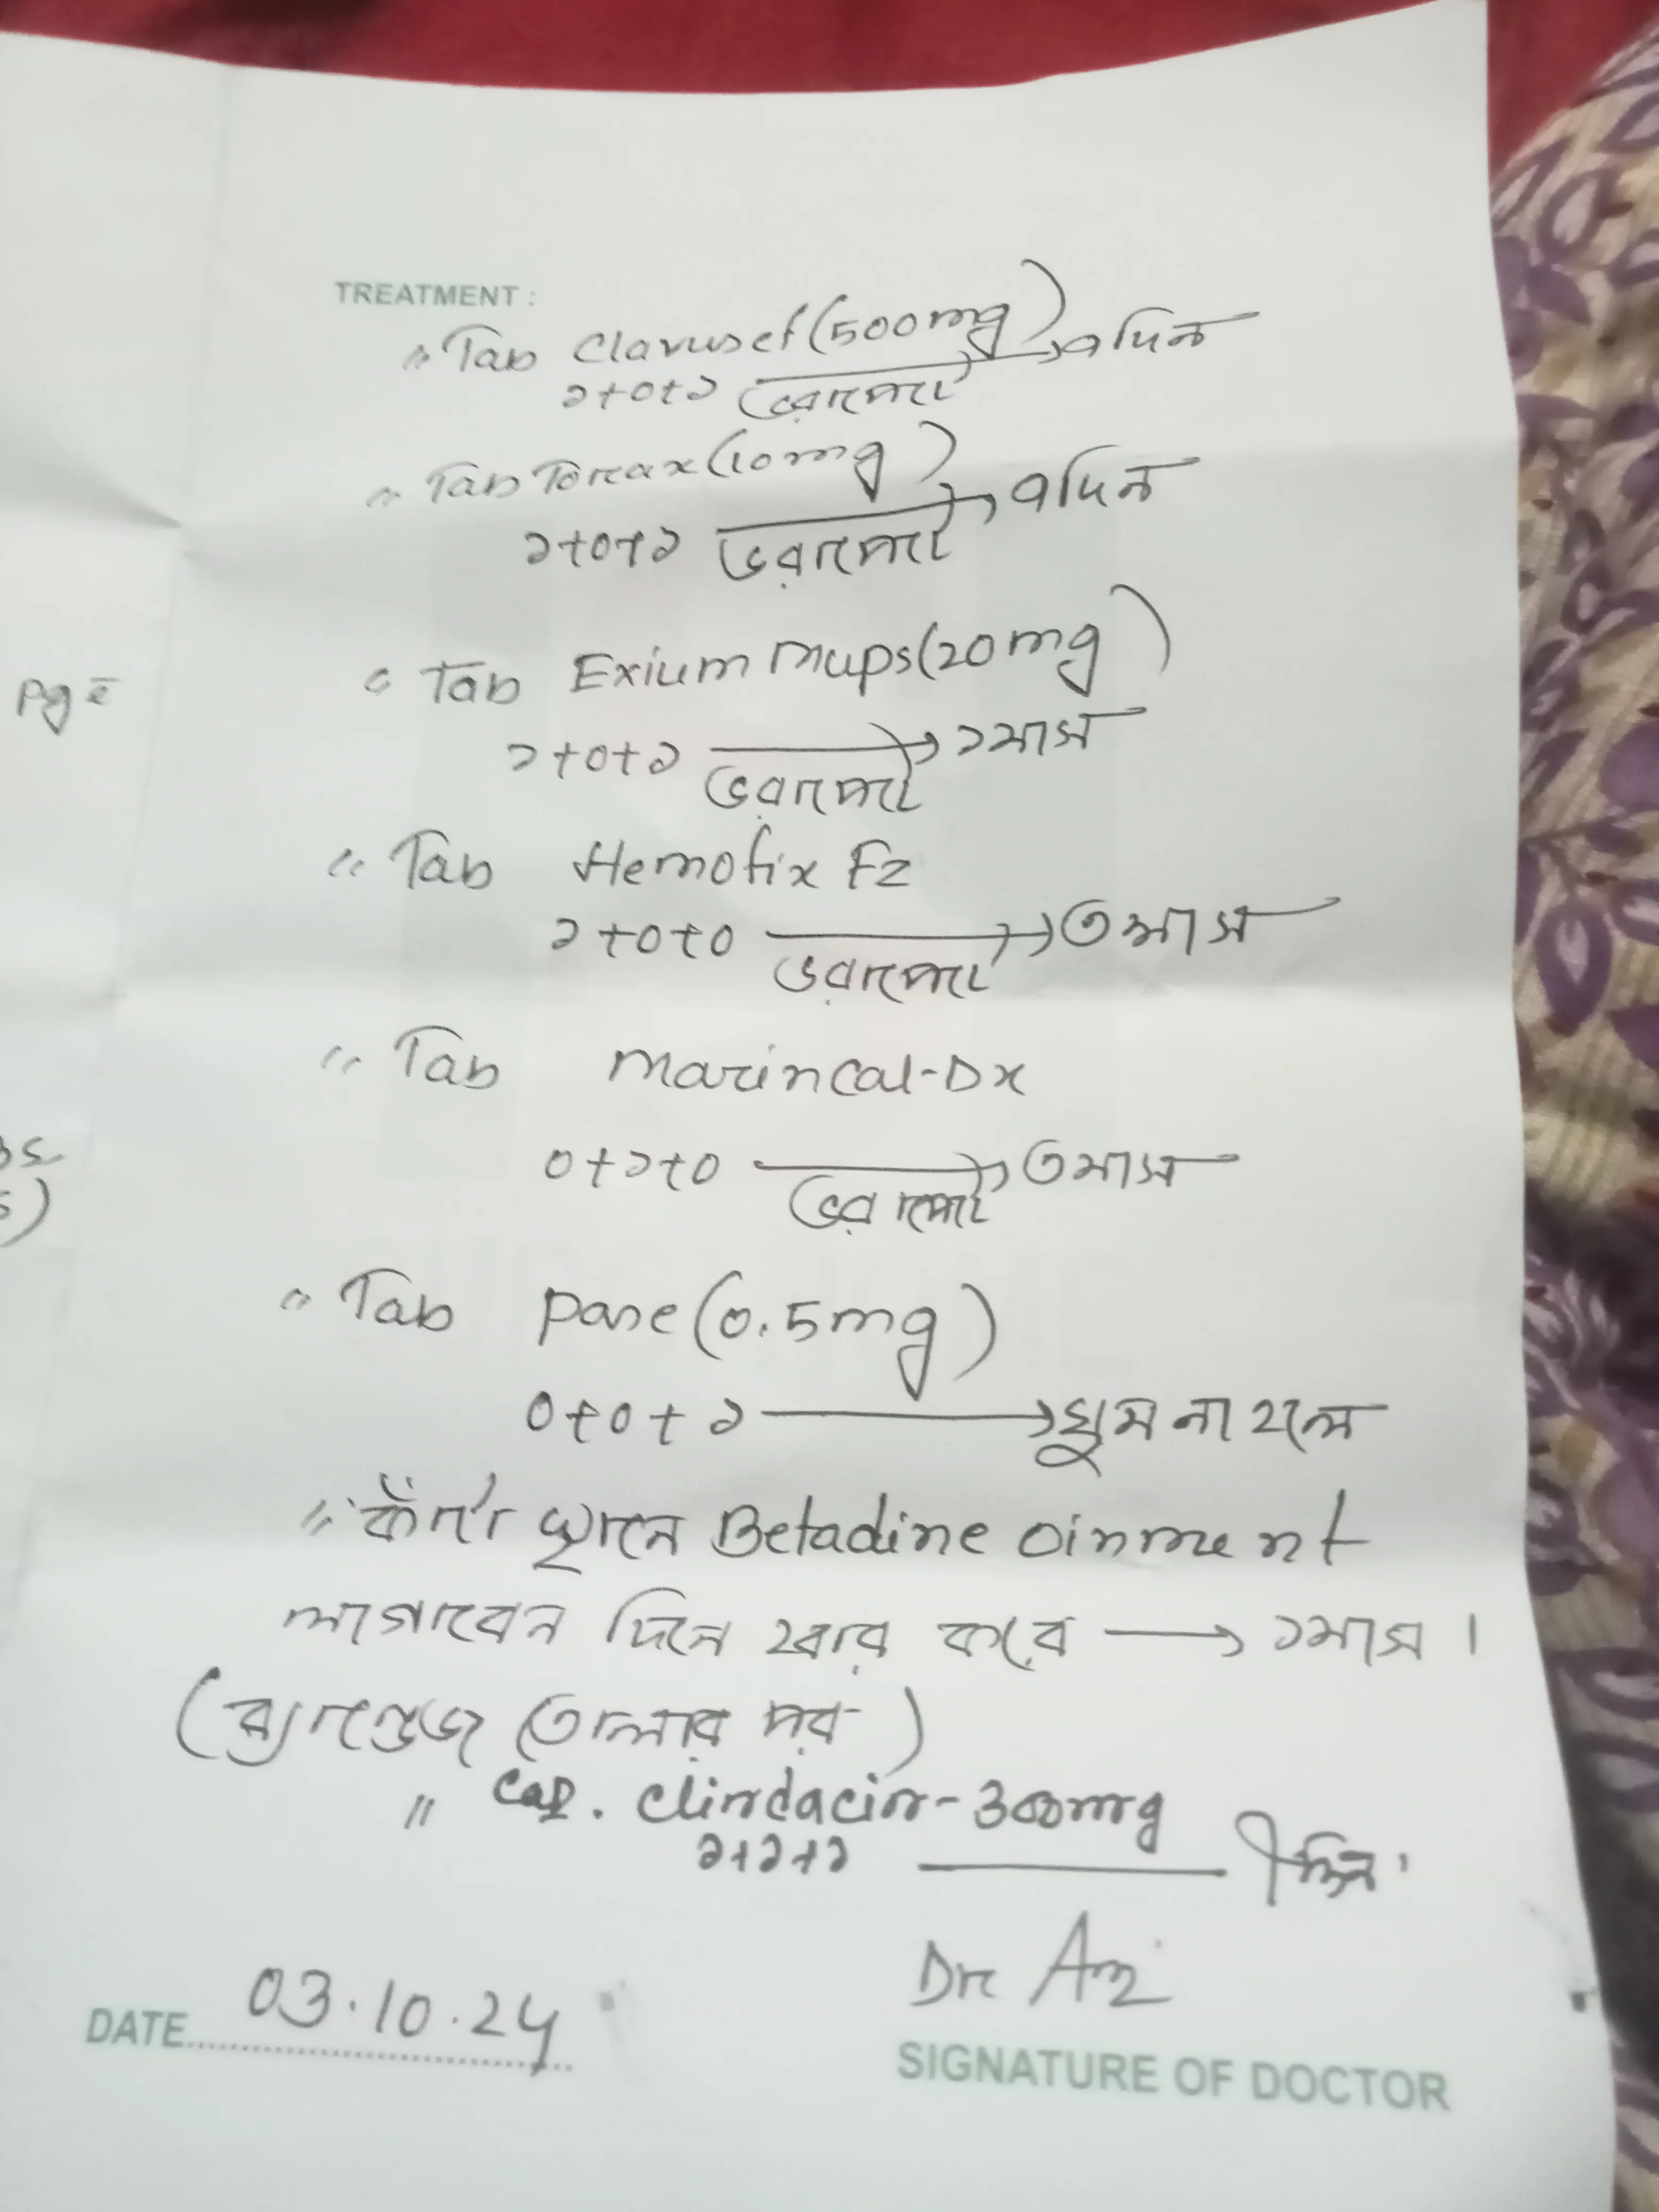 TREATMENT :
" Tab Clavusef (500mg)
১+০+১ ভরাপেটে → ৭দিন
" Tab Torax (10mg)
১+০+১ ভরাপেটে → ৭দিন
" Tab Exium mups (20mg)
pg c̄
১+০+১ ভরাপেটে → ১মাস
" Tab Hemofix Fz
১+০+০ ভরাপেটে → ৩মাস
" Tab Marincal-Dx
০+১+০ ভরাপেটে → ৩মাস
" Tab Pase (0.5mg)
০+০+১ → ঘুম না হলে
" কাঁটা স্থানে Betadine oinment
লাগাবেন দিনে ২বার করে → ১মাস।
(ব্যান্ডেজ তোলার পর)
" Cap. Clindacin-300mg
১+১+১ — ৭দিন।
DATE 03.10.24
Dr
SIGNATURE OF DOCTOR